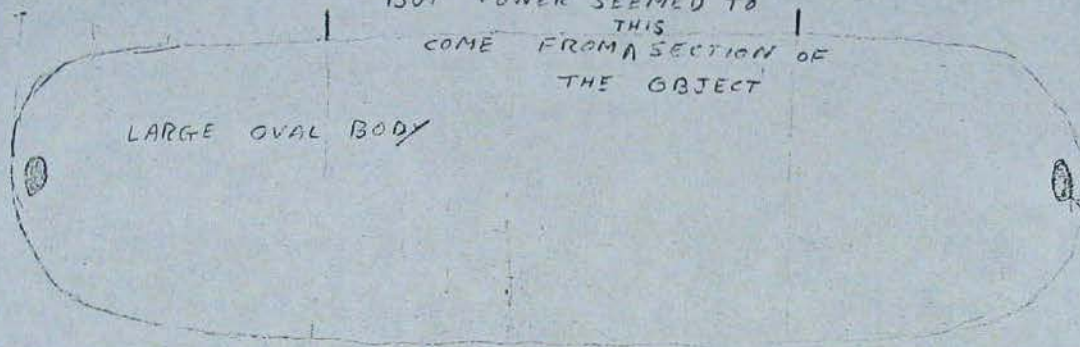 BUT POWER SEEMED TO
THIS
COME FROM ʌ SECTION OF
THE OBJECT
LARGE OVAL BODY